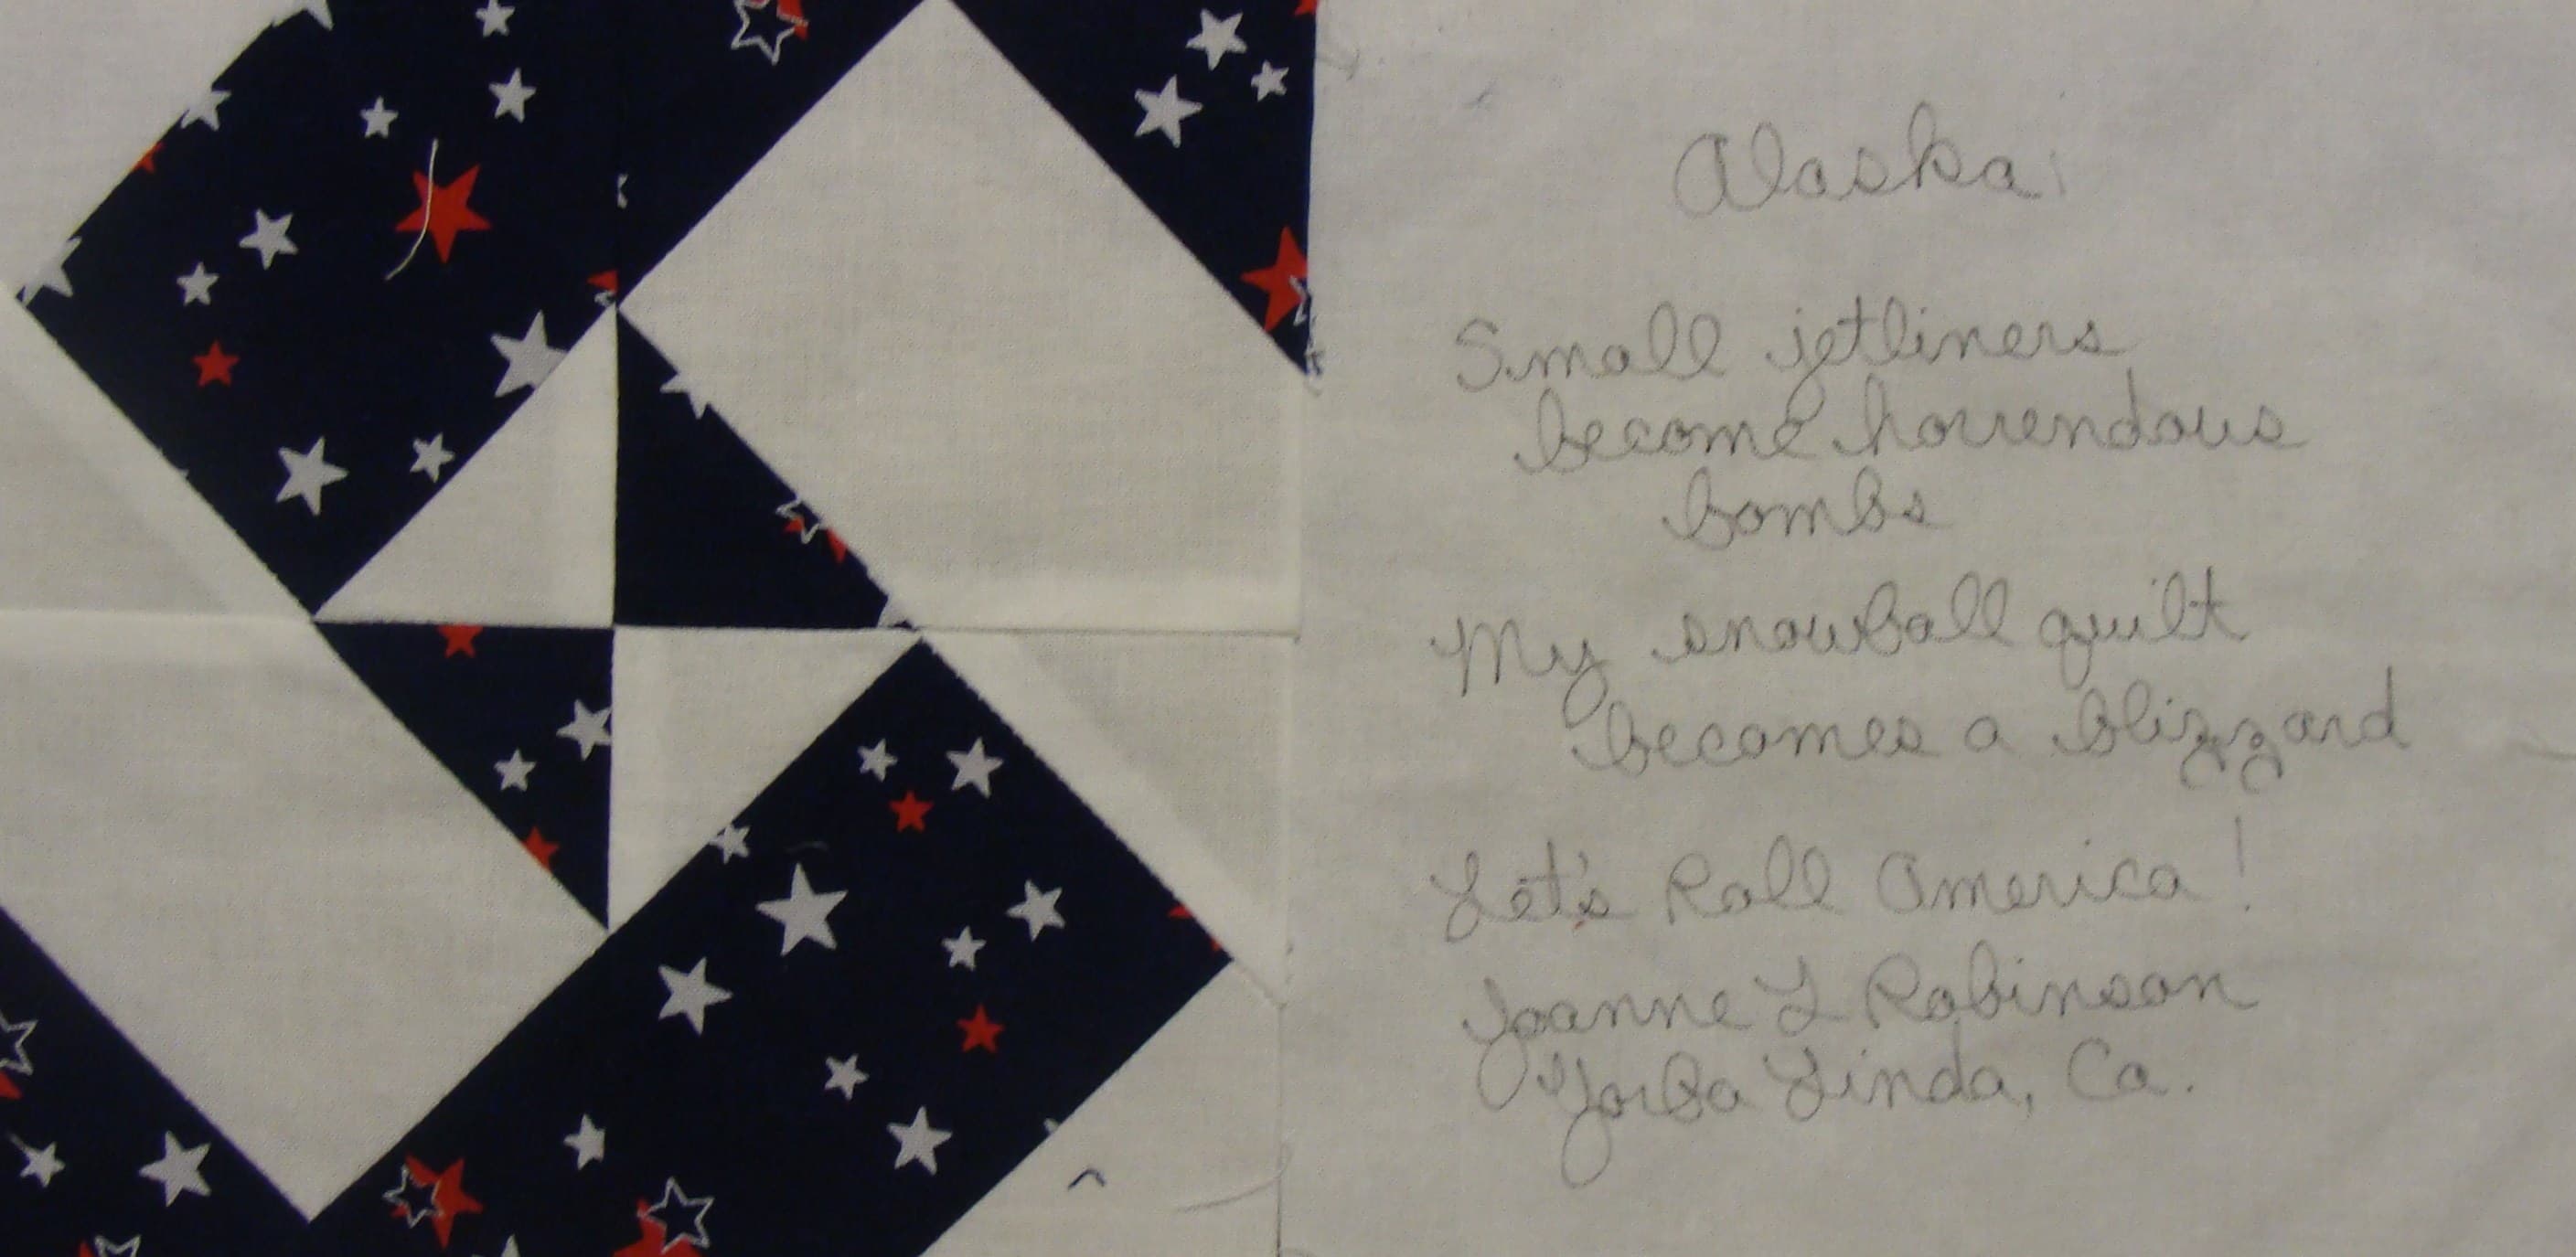 Alaska
Small jetliners
become horrendous
bombs
My snowball quilt
becomes a blizzard
Let's Roll America!
Joanne L Robinson
Yorba Linda, Ca.